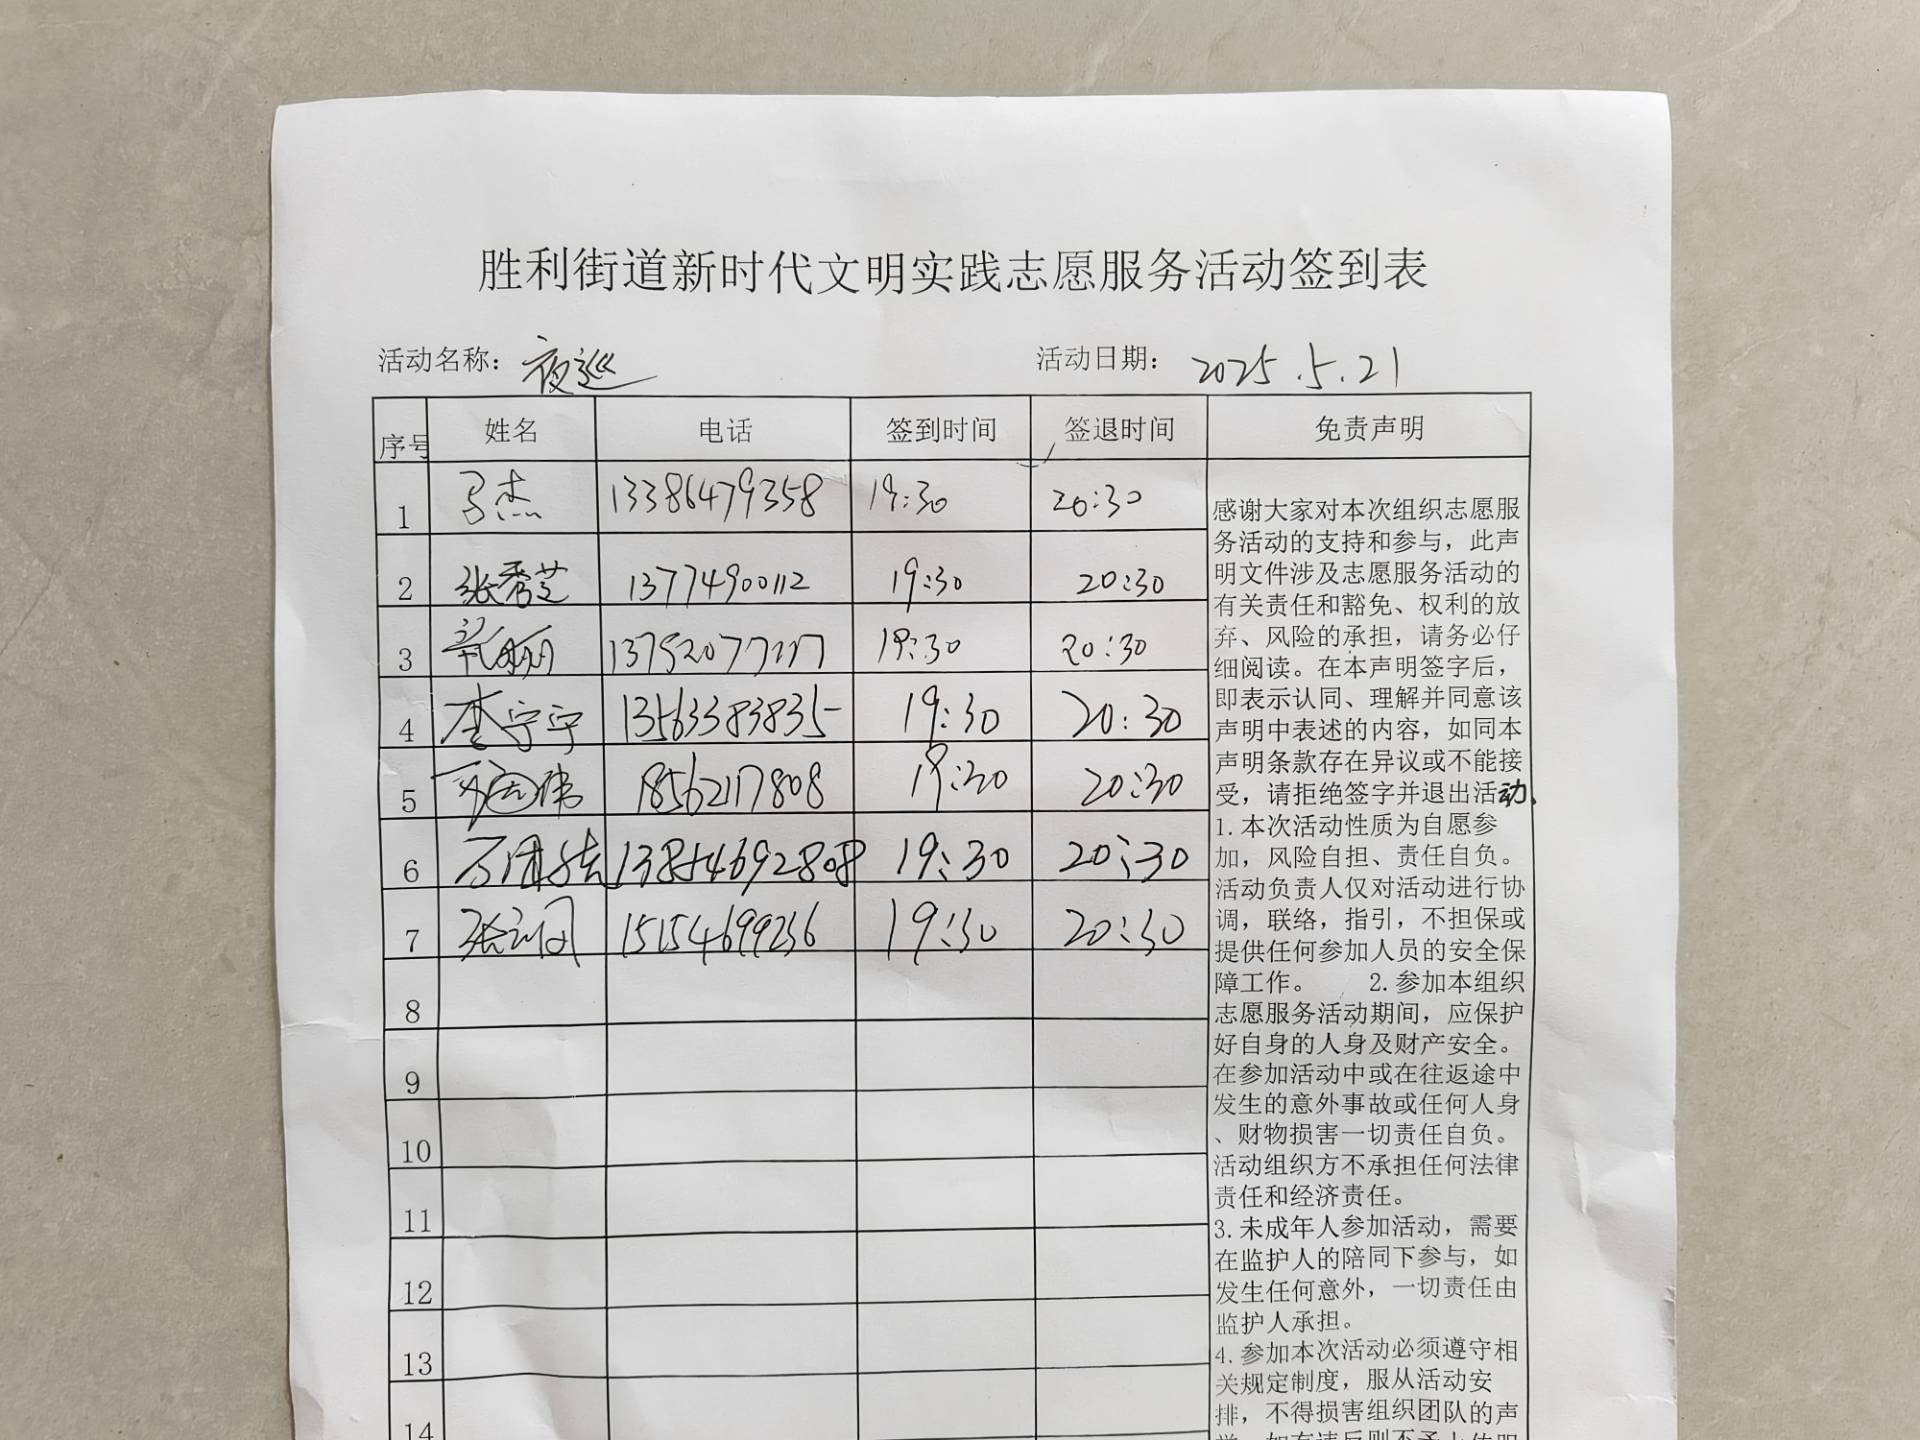 胜利街道新时代文明实践志愿服务活动签到表
活动名称：夜巡 活动日期：2025.5.21
序号 姓名 电话 签到时间 签退时间 免责声明
1 马杰 13386479358 19:30 20:30
2 张秀芝 13774900112 19:30 20:30
3 13752077117 19:30 20:30
4 李宁宁 13563383835 19:30 20:30
5 18562117808 19:30 20:30
6 13854692808 19:30 20:30
7 15154699236 19:30 20:30
8
9
10
11
12
13
14
感谢大家对本次组织志愿服
务活动的支持和参与，此声
明文件涉及志愿服务活动的
有关责任和豁免、权利的放
弃、风险的承担，请务必仔
细阅读。在本声明签字后，
即表示认同、理解并同意该
声明中表述的内容，如同本
声明条款存在异议或不能接
受，请拒绝签字并退出活动.
1.本次活动性质为自愿参
加，风险自担、责任自负。
活动负责人仅对活动进行协
调，联络，指引，不担保或
提供任何参加人员的安全保
障工作。 2.参加本组织
志愿服务活动期间，应保护
好自身的人身及财产安全。
在参加活动中或在往返途中
发生的意外事故或任何人身
、财物损害一切责任自负。
活动组织方不承担任何法律
责任和经济责任。
3.未成年人参加活动，需要
在监护人的陪同下参与，如
发生任何意外，一切责任由
监护人承担。
4.参加本次活动必须遵守相
关规定制度，服从活动安
排，不得损害组织团队的声